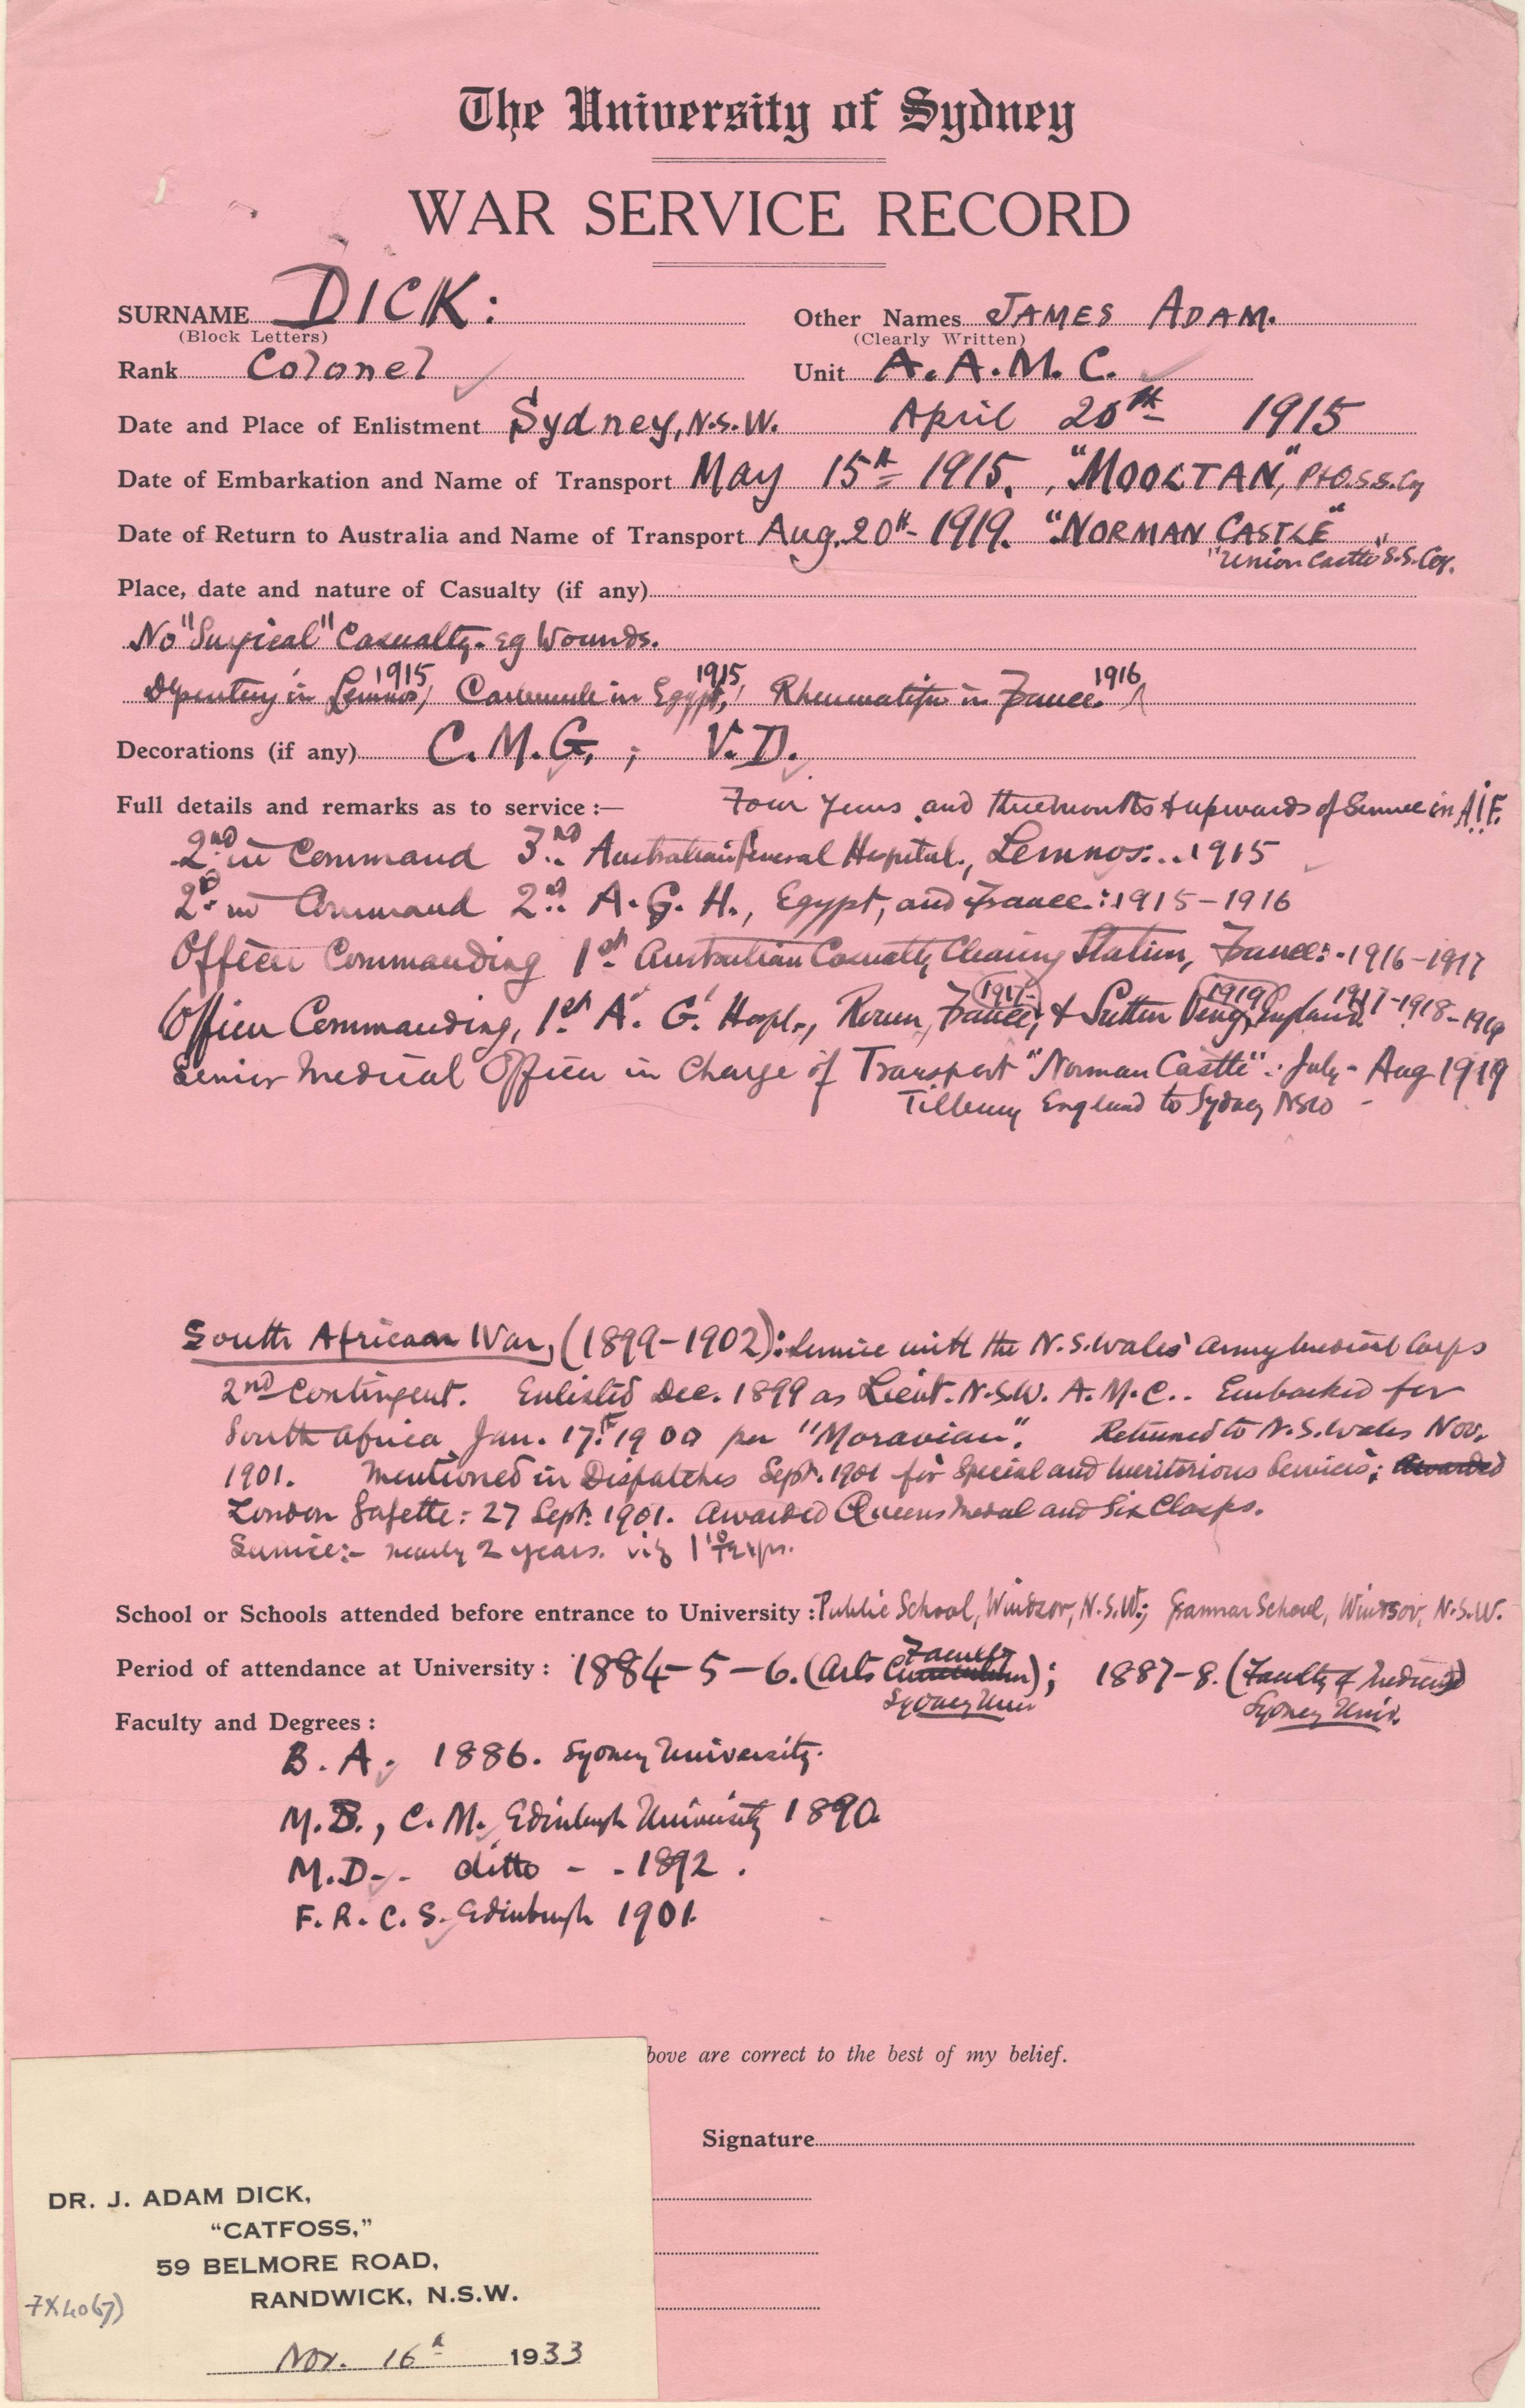 The University of Sydney
WAR SERVICE RECORD
SURNAME DICK: Other Names JAMES ADAM.
(Block Letters) (Clearly Written)
Rank Colonel Unit A.A.M.C.
Date and Place of Enlistment Sydney, N.S.W. April 20th 1915
Date of Embarkation and Name of Transport May 15th 1915, "MOOLTAN", P&O.S.S.Coy
Date of Return to Australia and Name of Transport Aug. 20th 1919. "NORMAN CASTLE"
"Union Castle" S.S. Coy.
Place, date and nature of Casualty (if any)
No "Surgical" Casualty. eg Wounds.
Dysentery in Lemnos, 1915 Carbuncle in Egypt, 1915 Rheumatism in France. 1916
Decorations (if any) C.M.G.; V.D.
Full details and remarks as to service :— Four years and three months & upwards of Service in A.I.F.
2nd in Command 3rd Australian General Hospital, Lemnos:..1915
2nd in Command 2nd A.G.H., Egypt, and France: 1915-1916
Officer Commanding 1st Australian Casualty Clearing Station, France:-1916-1917
Officer Commanding, 1st A. G. Hospl., Rouen, France, 1917- & Sutton Veny, 1919 England 1917-1918-1919
Senior Medical Officer in Charge of Transport "Norman Castle": July - Aug 1919
Tilbury England to Sydney NSW -
South African War, (1899-1902): Service with the N.S.Wales' Army Medical Corps
2nd Contingent. Enlisted Dec. 1899 as Lieut. N.S.W. A.M.C.. Embarked for
South Africa Jan. 17th 1900 per "Moravian". Returned to N.S.Wales Nov.
1901. Mentioned in Dispatches Sept. 1901 for Special and Meritorious Services; Awarded
London Gazette: 27 Sept. 1901. Awarded Queens Medal and Six Clasps.
Service:- nearly 2 years. viz 1 10/12 yrs.
School or Schools attended before entrance to University : Public School, Windsor, N.S.W.; Grammar School, Windsor, N.S.W.
Period of attendance at University : 1884-5-6. (Arts Curriculum Faculty); 1887-8. (Faculty of Medicine)
Sydney Univ Sydney Univ.
Faculty and Degrees :
B.A. 1886. Sydney University.
M.B., C.M. Edinburgh University 1890.
M.D. - ditto - - 1892.
F.R.C.S. Edinburgh 1901.
bove are correct to the best of my belief.
Signature
DR. J. ADAM DICK,
"CATFOSS,"
59 BELMORE ROAD,
RANDWICK, N.S.W.
Nov. 16th 1933